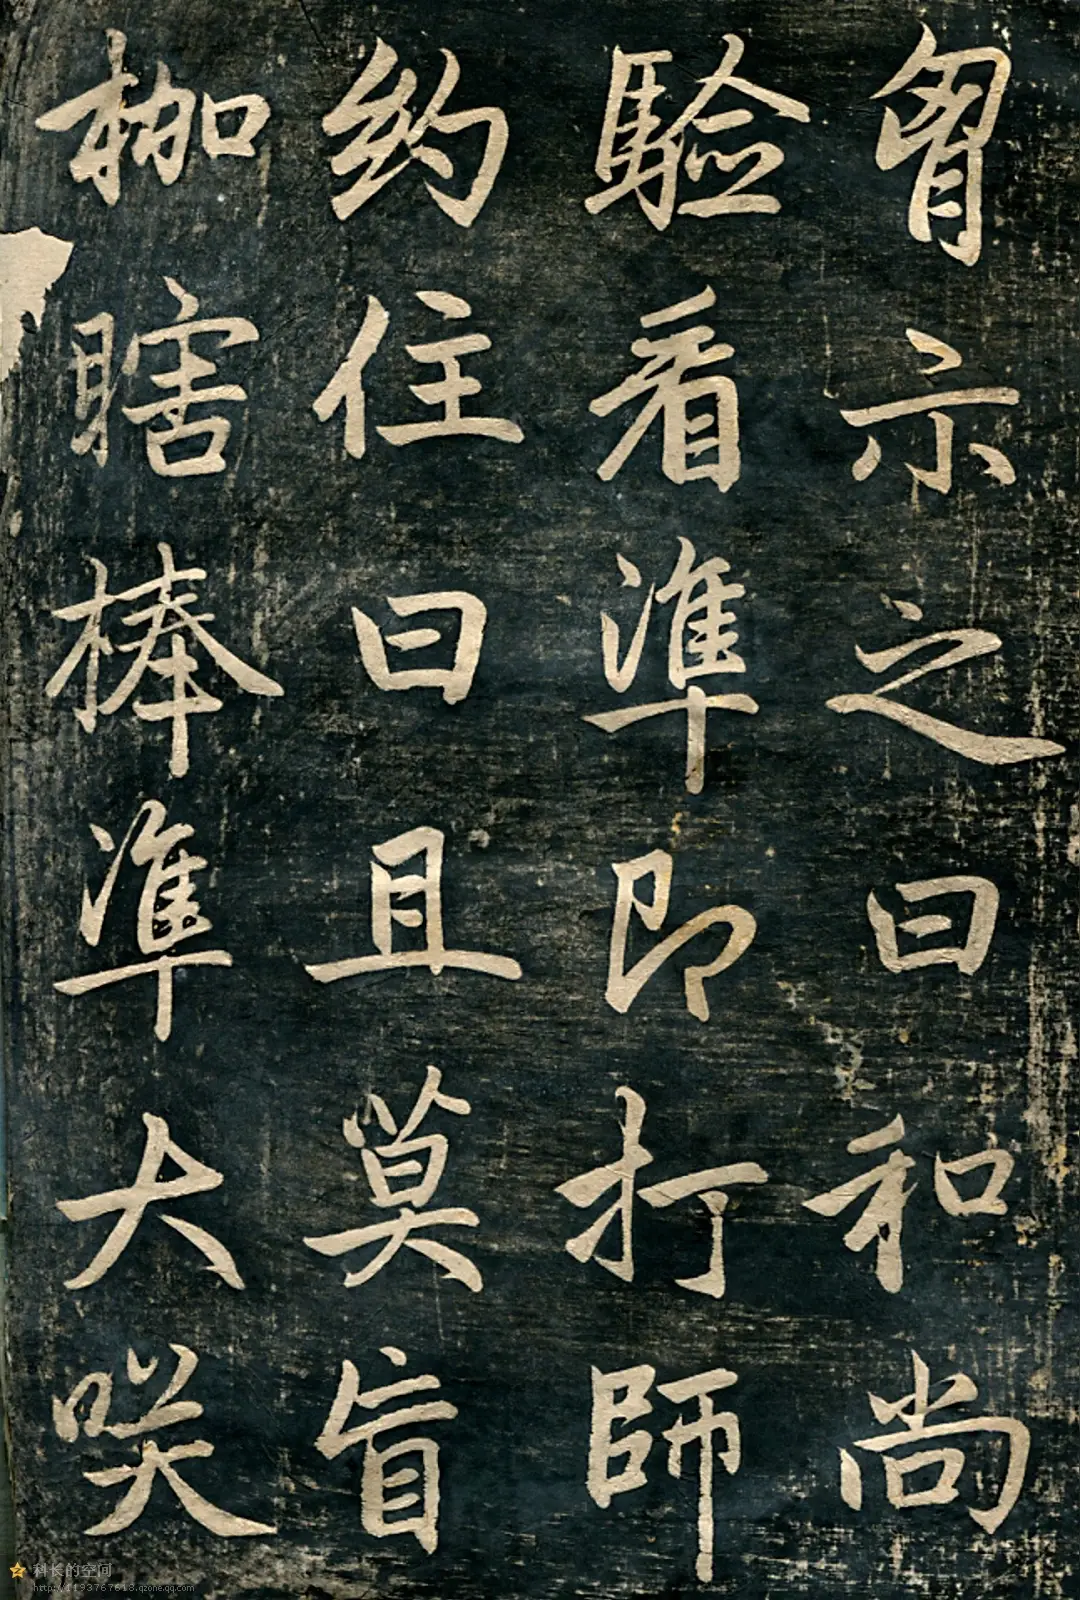 胷示之曰和尚
驗看準即打師
約住曰且莫盲
枷瞎棒準大咲
科长的空间
http://1193767613.qzone.qq.com